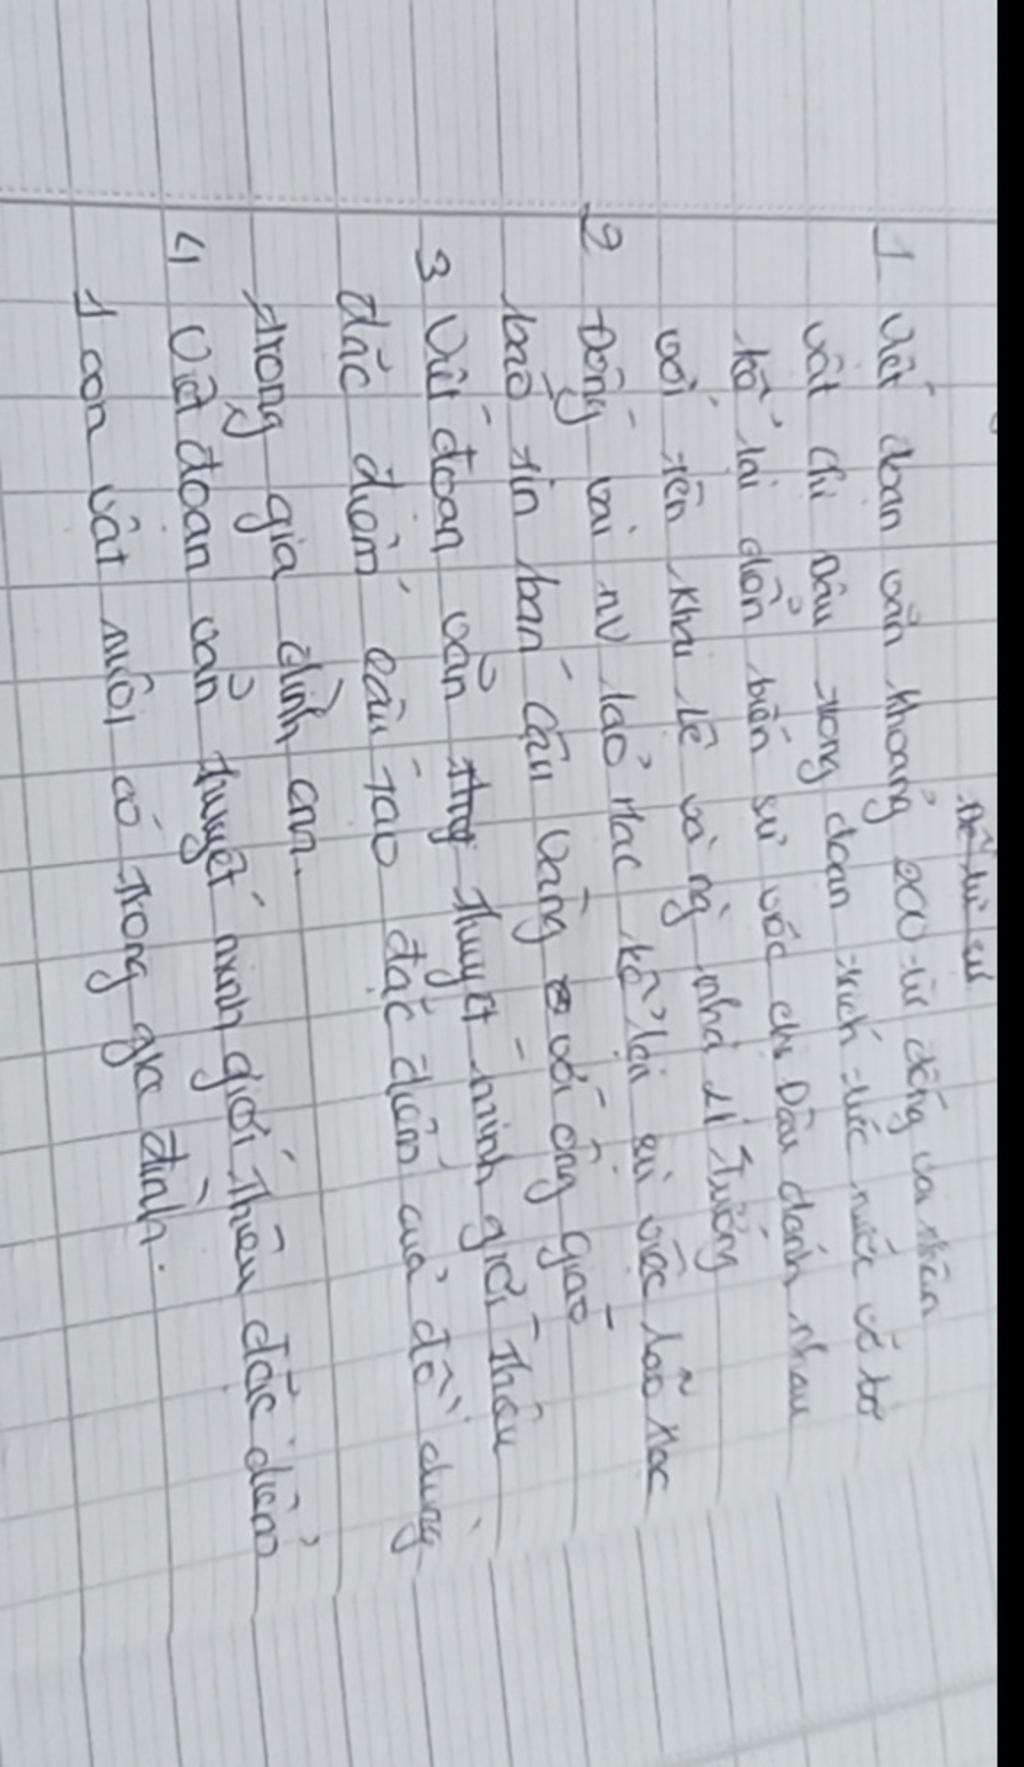 1 Viết đoạn văn khoảng 200 từ đóng vai nhân
vật chị Dậu trong đoạn trích tức nước vỡ bờ
kể lại diễn biến sự việc chị Dậu đánh nhau
với tên khu lê và ng` nhà Lí Trưởng
2 Đóng vai nv lão Hạc kể lại sự việc lão Hạc
báo tin bán cậu vàng với ông giáo
3 Viết đoạn văn thuyết minh giới thiệu
đặc điểm cấu tạo đặc điểm của đồ dùng
trong gia đình em.
4 Viết đoạn văn thuyết minh giới thiệu đặc điểm
1 con vật nuôi có trong gia đình.